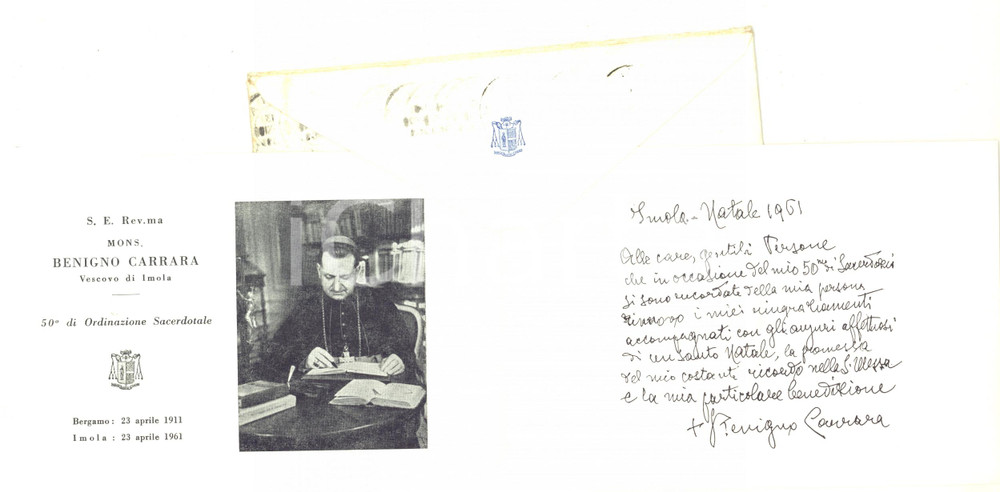 S. E. Rev.ma
MONS.
BENIGNO CARRARA
Vescovo di Imola
50º di Ordinazione Sacerdotale
Bergamo: 23 aprile 1911
Imola : 23 aprile 1961
Imola - Natale 1961
Alle care, gentili Persone
che in occasione del mio 50mo di Sacerdozio
si sono ricordate della mia persona
rinnovo i miei ringraziamenti
accompagnati con gli auguri affettuosi
di un Santo Natale, la promessa
del mio costante ricordo nella S. Messa
e la mia particolare benedizione
+ Benigno Carrara